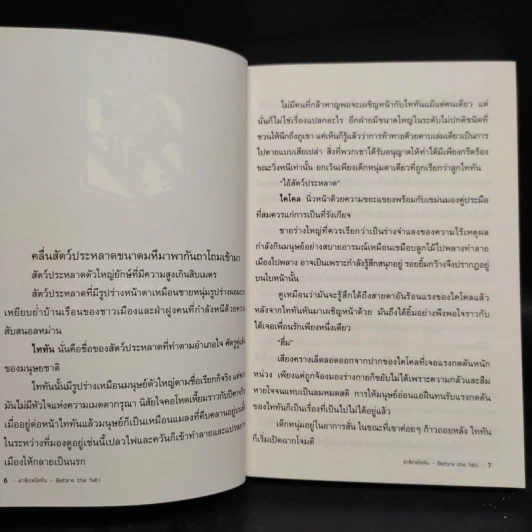 คลื่นสัตว์ประหลาดขนาดมหึมาพากันถาโถมเข้ามา
สัตว์ประหลาดตัวใหญ่ยักษ์ที่มีความสูงเกินสิบเมตร
สัตว์ประหลาดที่มีรูปร่างหน้าตาเหมือนชายหนุ่มรูปร่าง
เหยียบย่ำบ้านเรือนของชาวเมืองและฝ่าฝูงคนที่กำลังหนีด้วยความ
สับสนอลหม่าน
ไททัน นั่นคือชื่อของสัตว์ประหลาดที่ทำตามอำเภอใจ ศัตรู
ของมนุษยชาติ
ไททันนั้นมีรูปร่างเหมือนมนุษย์ตัวใหญ่ตามชื่อเรียกก็จริง แต่
มันไม่มีหัวใจแห่งความเมตตากรุณา นิสัยใจคอโหดเหี้ยมราวกับปีศาจร้าย
เมื่ออยู่ต่อหน้าไททันแล้วมนุษย์ก็เป็นเหมือนแมลงที่คืบคลานอยู่บนพื้น
ในระหว่างที่มองดูอยู่เช่นนี้เปลวไฟและควันก็เข้าทำลายและแปรสภาพ
เมืองให้กลายเป็นนรก
6 - ผ่าพิภพไททัน - Before the fall 1
ไม่มีคนที่กล้าหาญพอจะเผชิญหน้ากับไททันแม้แต่คนเดียว แต่
นั่นก็ไม่ใช่เรื่องแปลกอะไร อีกฝ่ายมีขนาดใหญ่ในระดับไม่ปกติชนิดที่
ชวนให้นึกถึงภูเขา แค่เห็นก็รู้แล้วว่าการท้าทายด้วยดาบเล่มเดียวเป็นการ
ไปตายแบบเสียเปล่า สิ่งที่พวกเขาได้รับอนุญาตให้ทำได้มีเพียงกรีดร้อง
ขณะวิ่งหนีเท่านั้น ยกเว้นเพียงเด็กหนุ่มตาเดียวที่ถูกเรียกว่าลูกไททัน
"ไอ้สัตว์ประหลาด"
ไคโคล นิ่วหน้าด้วยความขยะแขยงพร้อมกับเขม่นมองคู่ประมือ
ที่สมควรแก่การเป็นที่รังเกียจ
ชายร่างใหญ่ที่ควรเรียกว่าเป็นร่างจำแลงของความไร้เหตุผล
กำลังกินมนุษย์อย่างสบายอารมณ์เหมือนเขมือบลูกไม้ไปพลางทำลาย
เมืองไปพลาง อาจเป็นเพราะกำลังรู้สึกสนุกอยู่ รอยยิ้มกว้างจึงปรากฏอยู่
บนใบหน้านั้น
ดูเหมือนว่ามันจะรู้สึกได้ถึงสายตาอันร้อนแรงของไคโคลแล้ว
หลังจากไททันหันมาเผชิญหน้าด้วย มันถึงได้ยิ้มอย่างพึงพอใจราวกับ
ได้เจอเพื่อนรักเพียงหนึ่งเดียว
เสียงครางเล็ดลอดออกจากปากของไคโคลที่เจอแรงกดดันหนัก
หน่วง เพียงแค่ถูกจ้องมองร่างกายก็ขยับไม่ได้เพราะความกลัวและลืม
หายใจจนแทบเป็นลมหมดสติ การให้มนุษย์อ่อนแอฝืนทนรับแรงกดดัน
ของไททันก็เป็นเรื่องที่เป็นไปไม่ได้อยู่แล้ว
เด็กหนุ่มอยู่ในอาการสั่น ในขณะที่เขาค่อยๆ ก้าวถอยหลัง ไททัน
ก็เริ่มเปิดฉากโจมตี
ผ่าพิภพไททัน - Before the fall 1 - 7